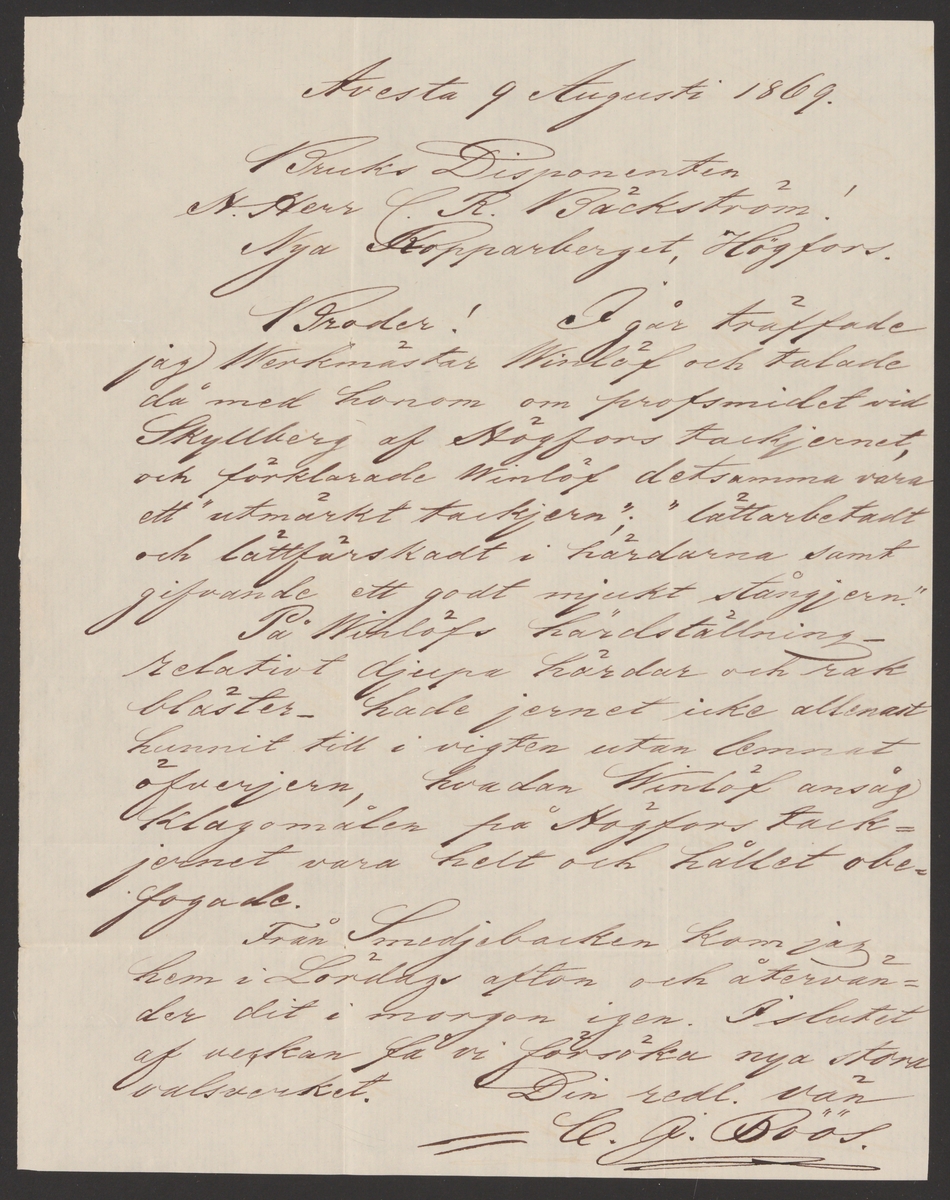 Avesta 9 Augusti 1869.
Bruks Disponenten
H. Herr C. R. Bäckström!
Nya Kopparberget, Högfors.
Broder! I går träffade
jag Werkmästar Winlöf och talade
då med honom om profsmidet vid
Skyllberg af Högfors tackjernet,
och förklarade Winlöf detsamma vara
ett "utmärkt tackjern"; "lättarbetadt
och lättfärskadt i härdarna samt
gifvande ett godt mjukt stångjern."
På Winlöfs härdställning –
relativt djupa härdar och rak
bläster – hade jernet icke allenast
hunnit till i vigten utan lemnat
öfverjern, hvadan Winlöf ansåg
klagomålen på Högfors tack=
jernet vara helt och hållet obe=
fogade.
Från Smedjebacken kom jag
hem i Lördags afton och återvän=
der dit i morgon igen. I slutet
af veckan få vi försöka nya stora
valsverket. Din redl. vän
C. J. Böös.